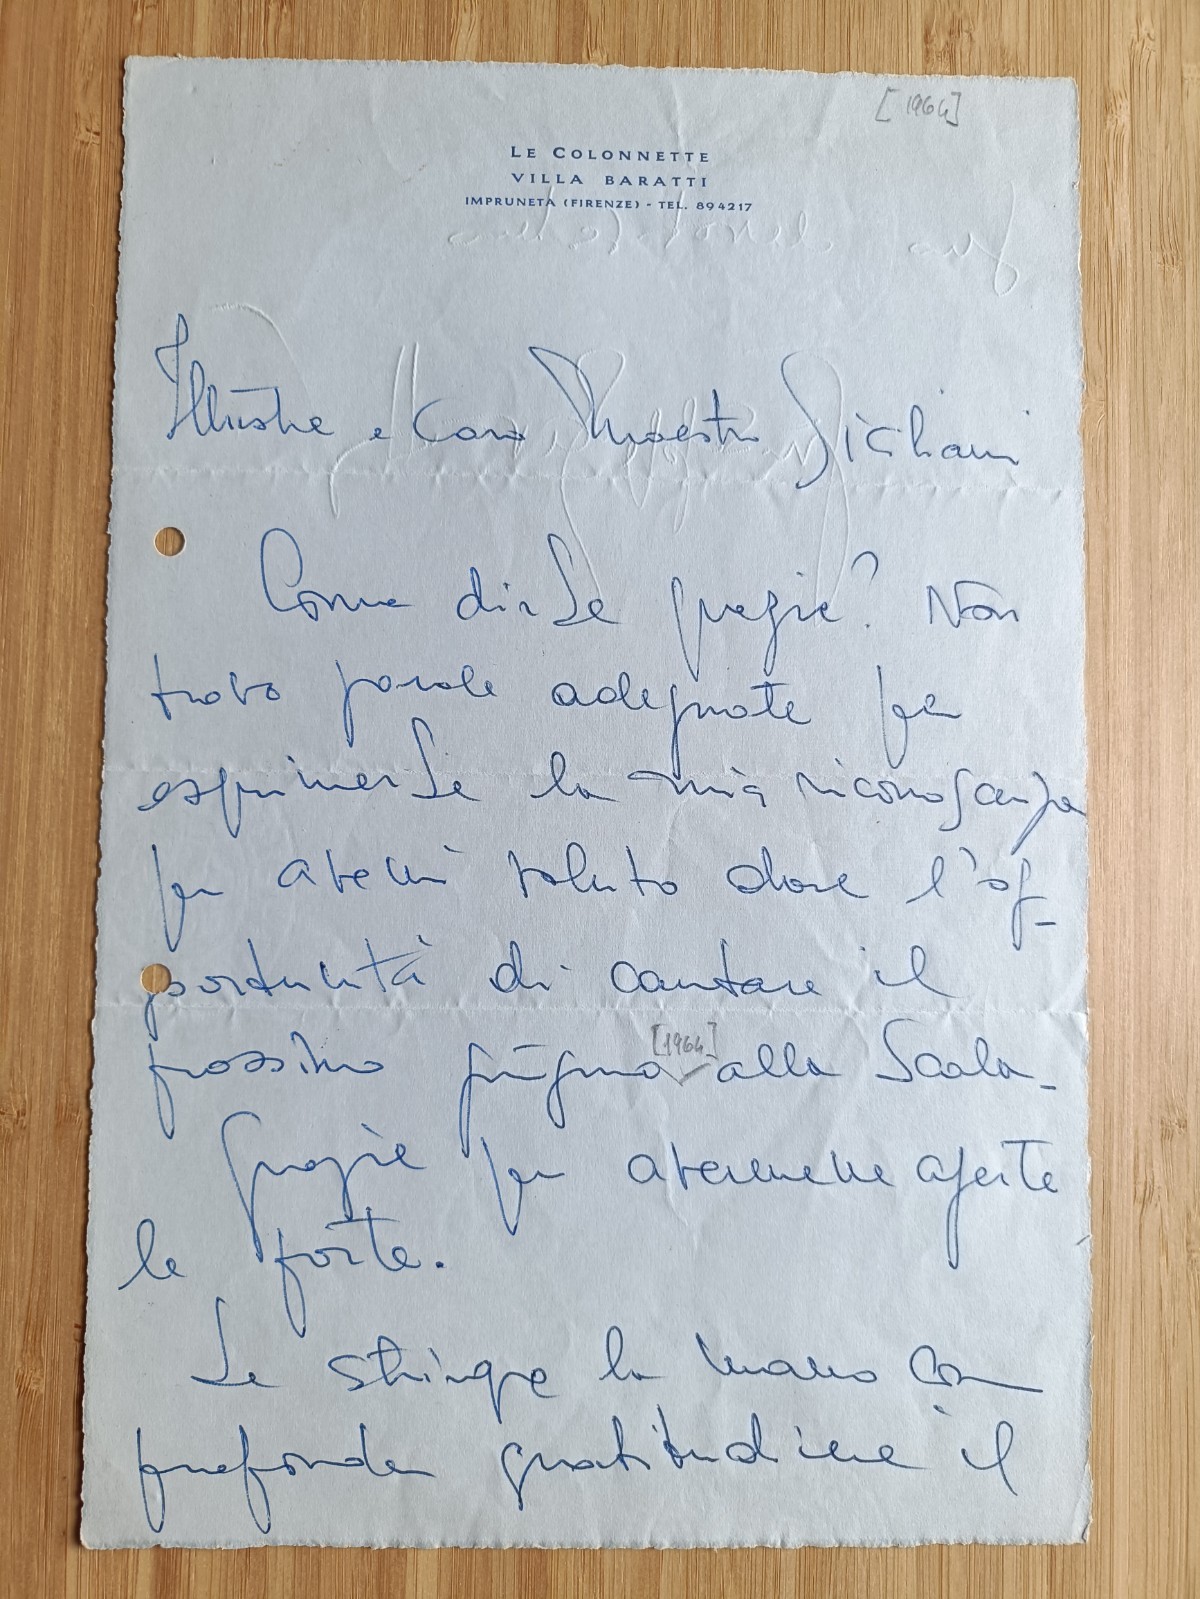 [1964]
LE COLONNETTE
VILLA BARATTI
IMPRUNETA (FIRENZE) - TEL. 894217
Illustre e Caro Maestro Siciliani
Come dirLe grazie? Non
trovo parole adeguate per
esprimerLe la mia riconoscenza
per avermi voluto dare l'op-
portunità di cantare il
prossimo giugno [1964] alla Scala-
Grazie per avermene aperte
le porte.
Le stringe la mano con
profonda gratitudine il